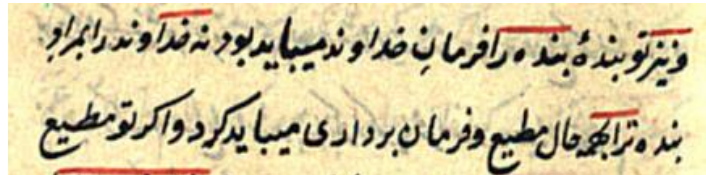 و نیز تو بندهٔ بنده را فرمان خداوند میباید بود نه خداوند را بمراد
بنده ترا بهمه حال مطیع و فرمان برداری میباید کرد و اکر تو مطیع